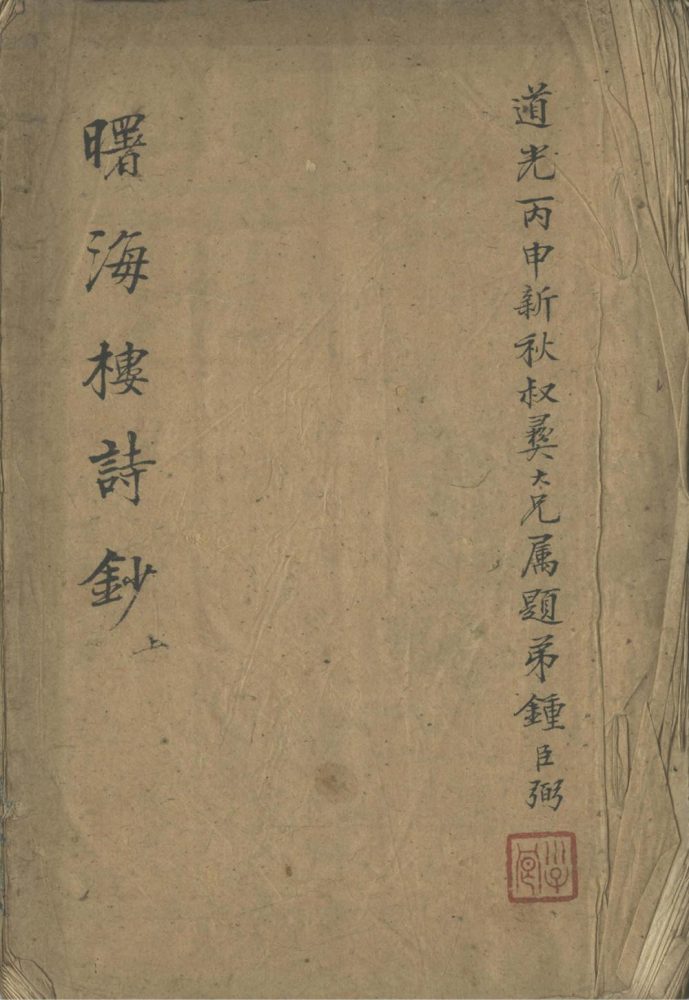 道光丙申新秋叔彝大兄属題弟鍾臣弼
曙海樓詩鈔
上